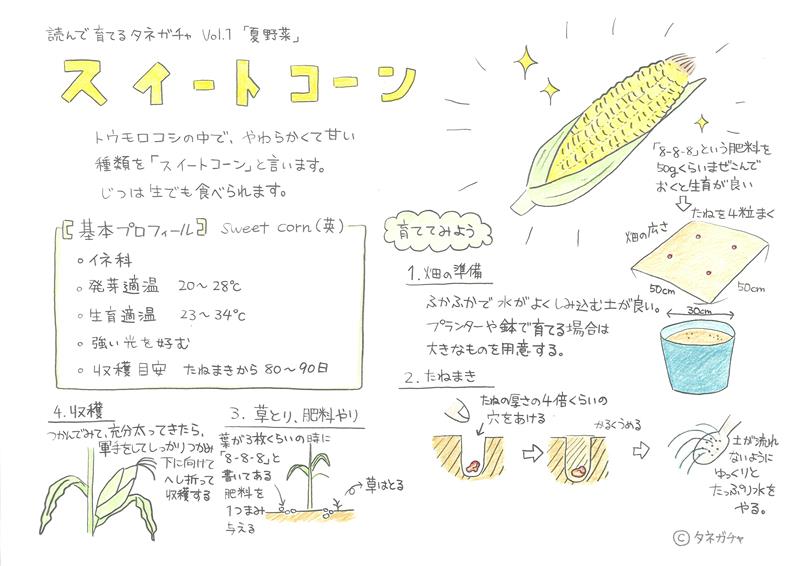 読んで育てるタネガチャ Vol.1「夏野菜」
スイートコーン
トウモロコシの中で、やわらかくて甘い
種類を「スイートコーン」と言います。
じつは生でも食べられます。
【基本プロフィール】 sweet corn(英)
◦イネ科
◦発芽適温 20〜28℃
◦生育適温 23〜34℃
◦強い光を好む
◦収穫目安 たねまきから80〜90日
育ててみよう
1.畑の準備
ふかふかで水がよくしみ込む土が良い。
プランターや鉢で育てる場合は
大きなものを用意する。
「8-8-8」という肥料を
50gくらいまぜこんで
おくと生育が良い
たねを4粒まく
畑の広さ
50cm
50cm
30cm
2.たねまき
たねの厚さの4倍くらいの
穴をあける
かるくうめる
土が流れ
ないように
ゆっくりと
たっぷり水を
やる。
3.草とり、肥料やり
葉が3枚くらいの時に
「8-8-8」と
書いてある
肥料を
1つまみ
与える
草はとる
4.収穫
つかんでみて、充分太ってきたら、
軍手をしてしっかりつかみ
下に向けて
へし折って
収穫する
©タネガチャ